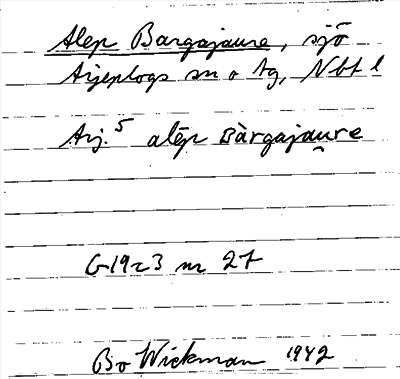 Alep Bargajaure, sjö
Arjeplogs sn o tg, Nbt l
Arj.⁵ alēp Bàrgajau̯re
G19c3 nr 27
Bo Wickman 1942